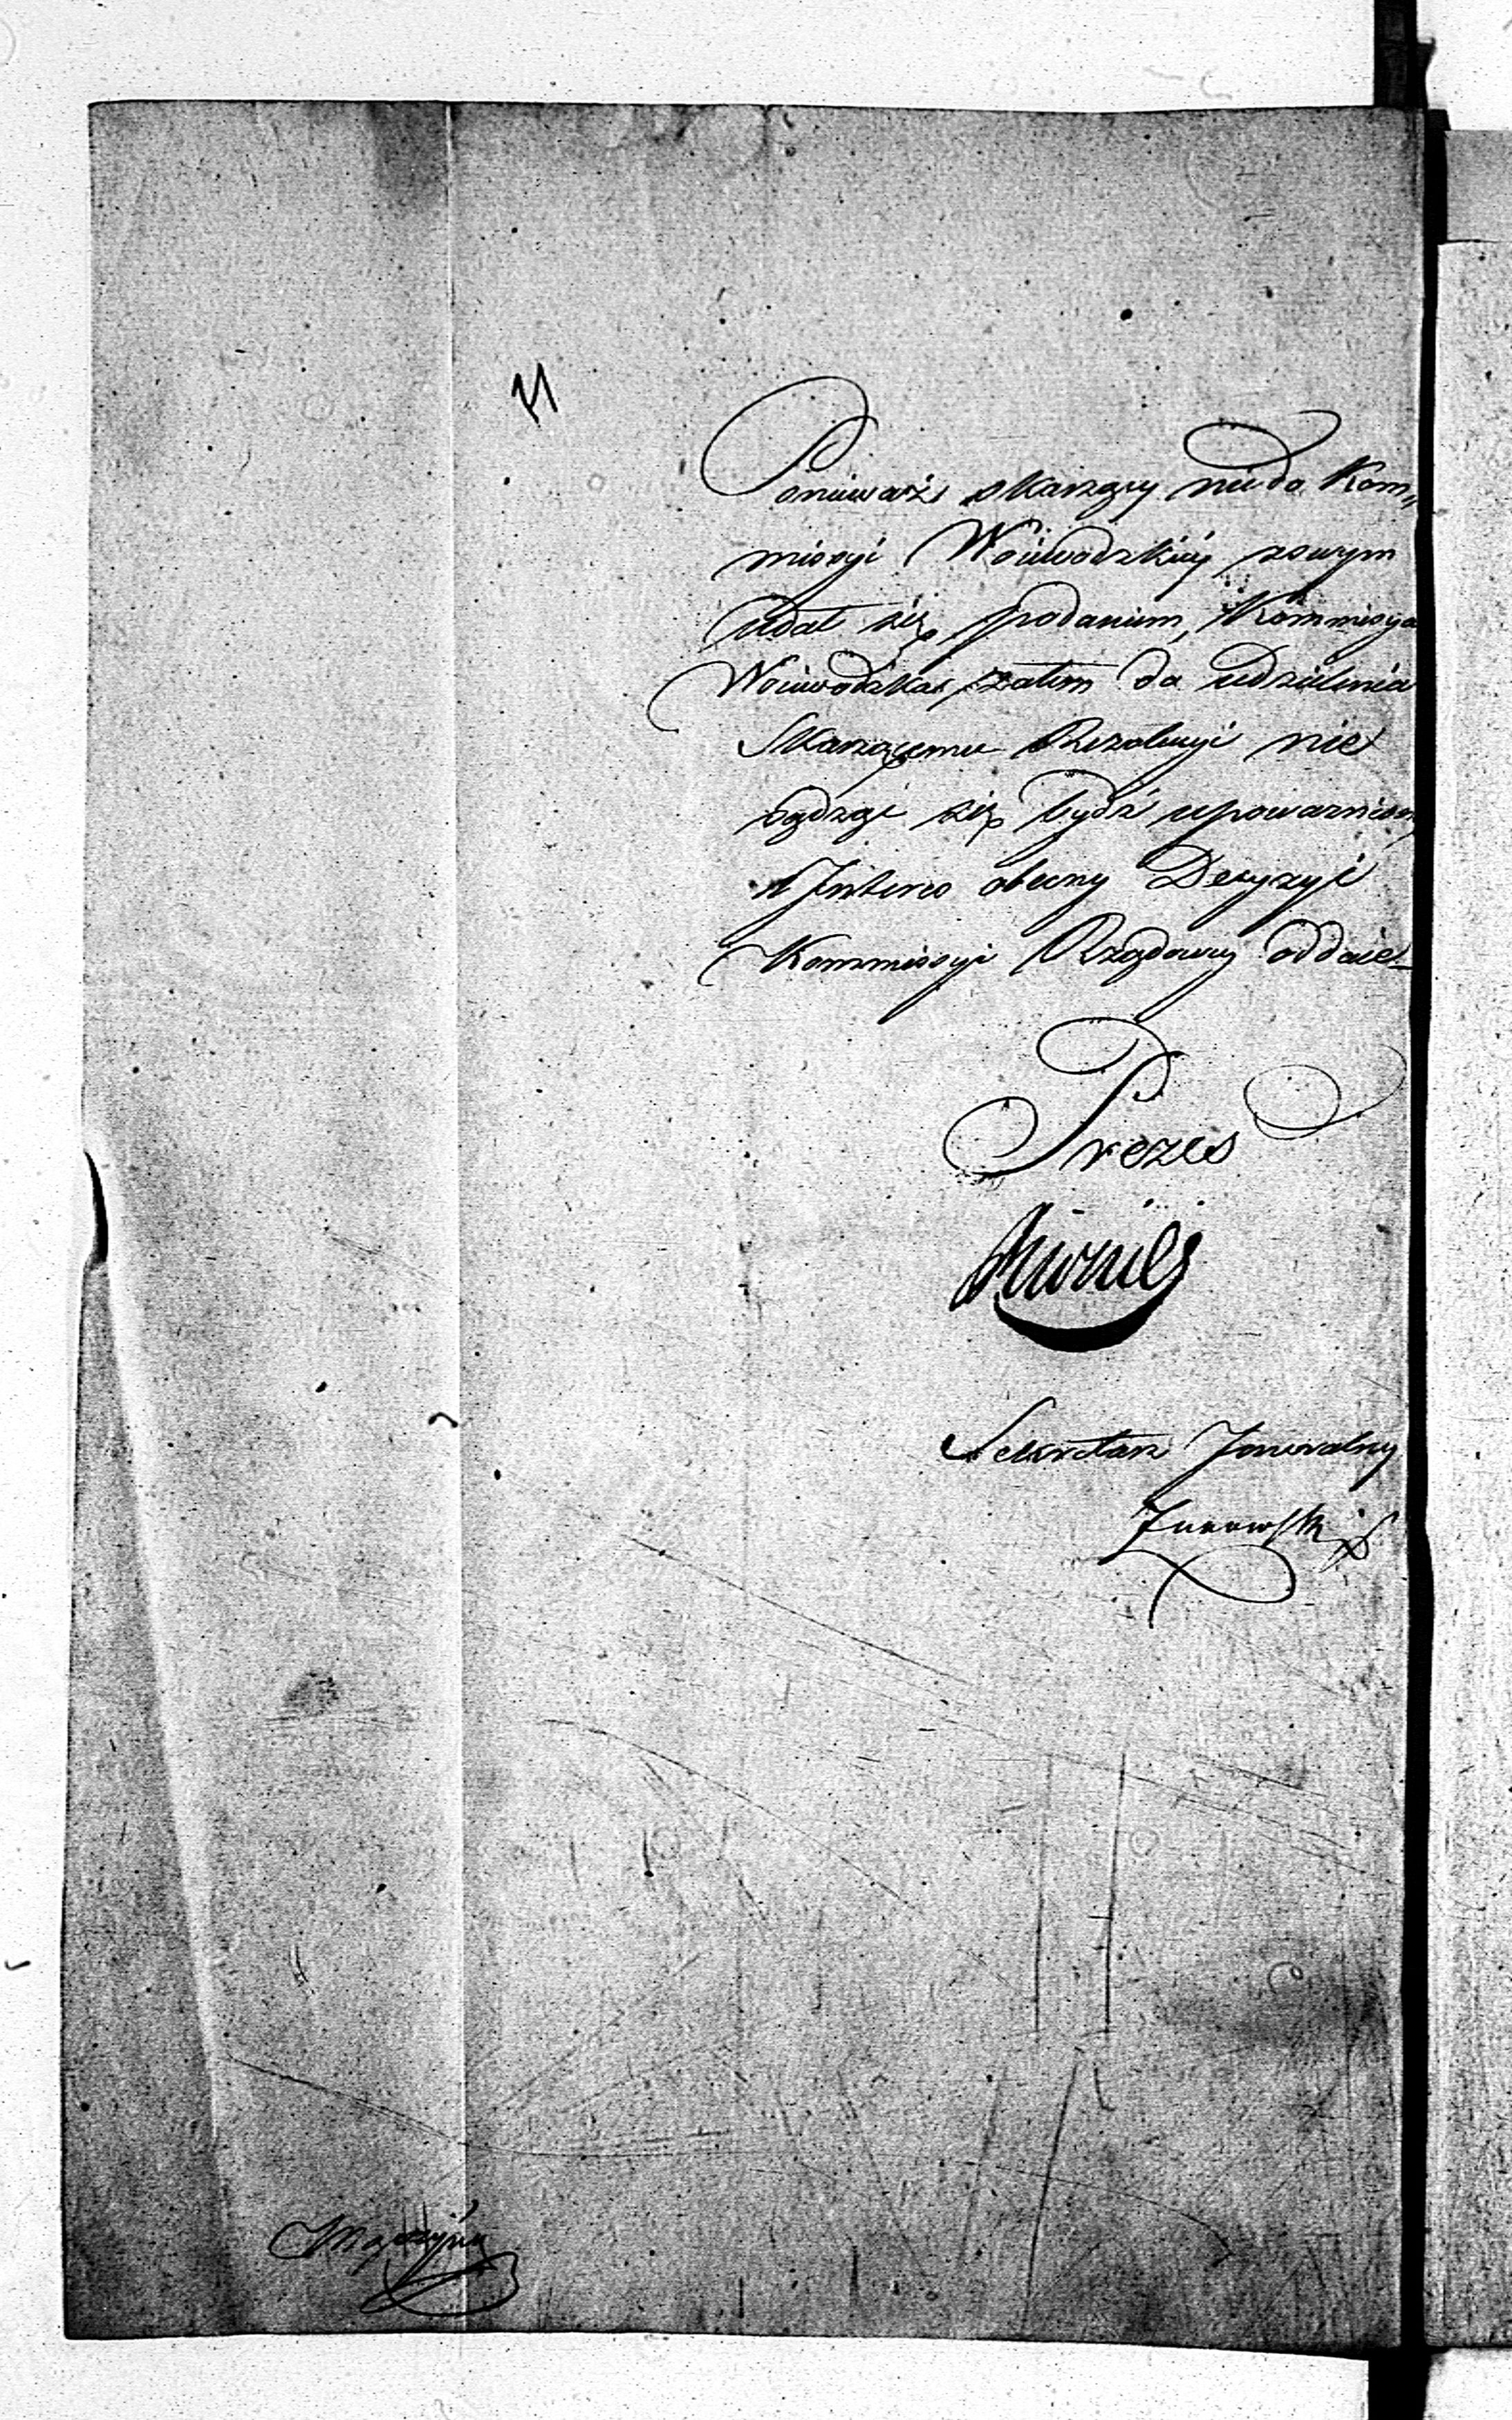 Ponieważ skarzący nie do Kom„
missyi Woiewodzkiey zswym
udał się podaniem, Kommissya
Woiewodzka zatem do udzielenia
Skarzącemu Rezolucyi nie
sądząc się bydź upoważnioną
Interes obecny Decyzyi
Kommissyi Rządowey oddaie
Prezes
Sekretarz Jeneralny
Żurowski